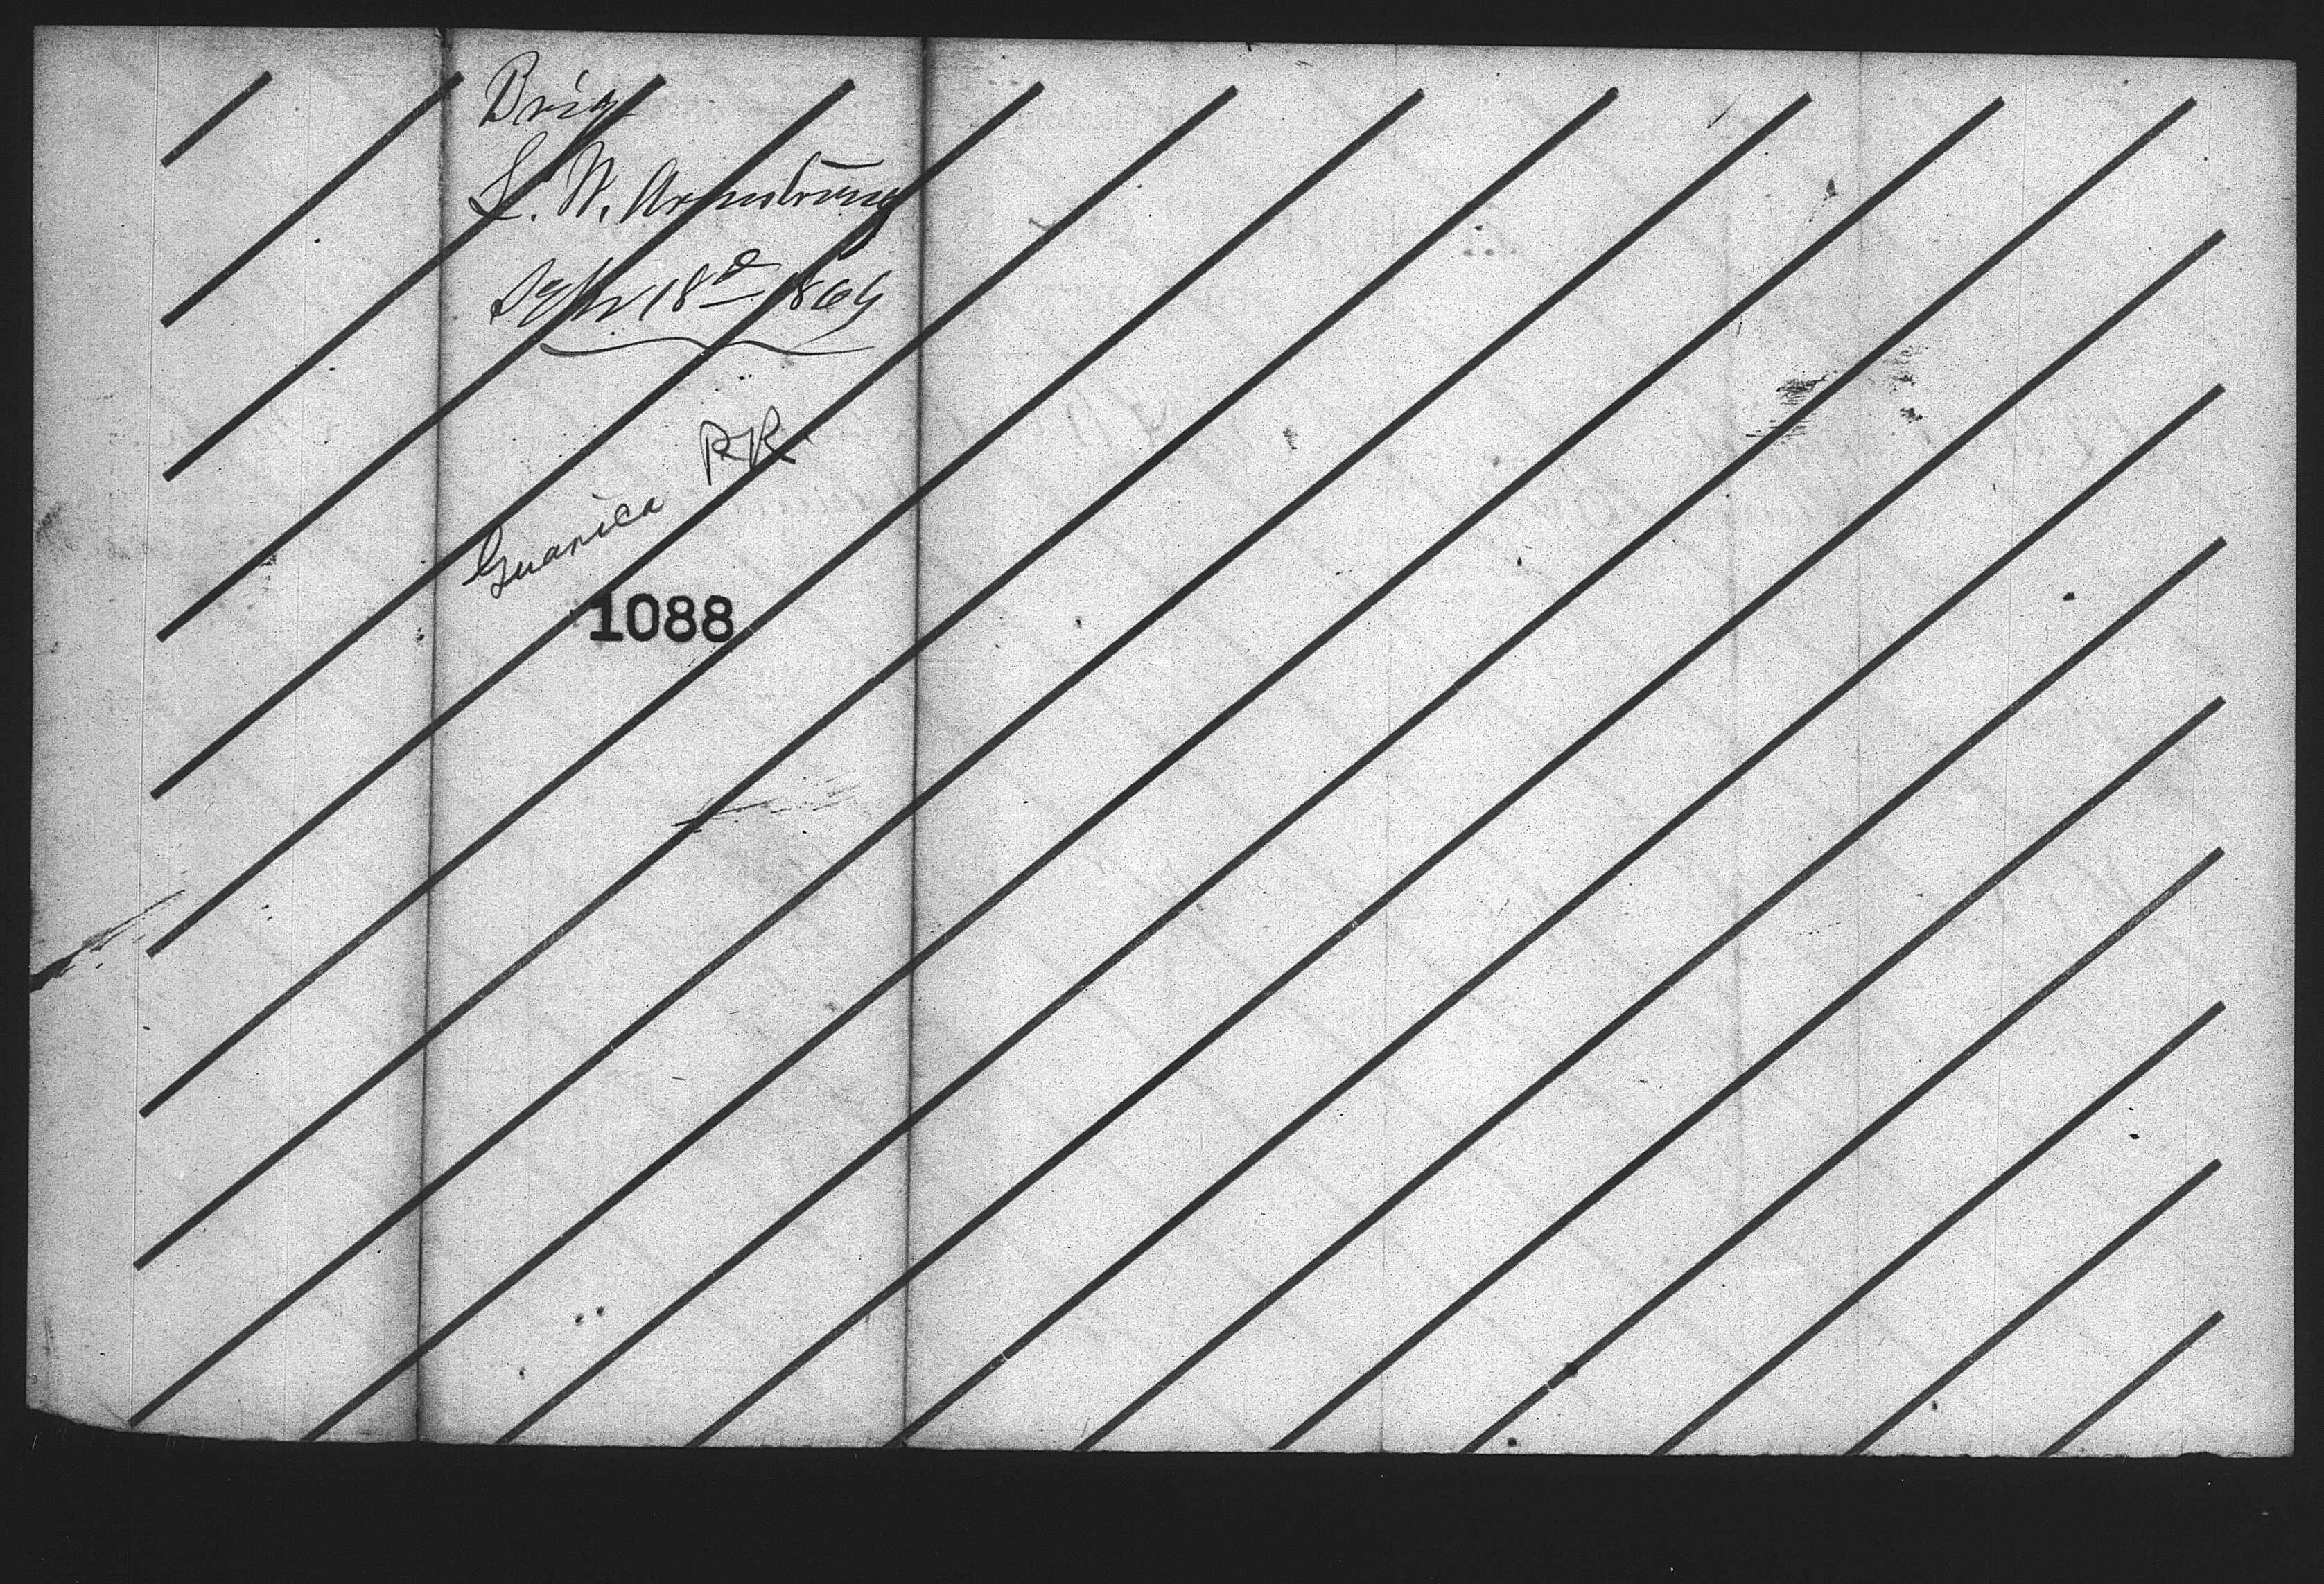 Brig
L. W. Armstrong
Septr 18th 1869
Guanica P.R.
1088